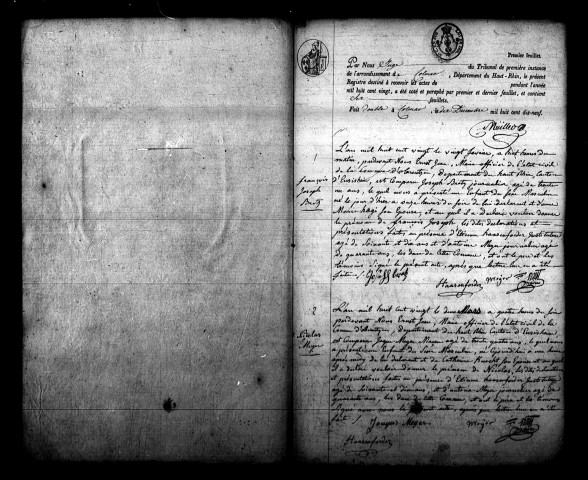 Premier feuillet.
Par Nous Juge du Tribunal de première instance
de l'arrondissement de Colmar, Département du Haut-Rhin, le présent
Registre destiné à recevoir les actes de pendant l'année
mil huit cent vingt, a été coté et paraphé par premier et dernier feuillet, et contient
six feuillets.
Fait double à Colmar, le Décembre mil huit cent dix-neuf.
1
françois
Joseph
L'an mil huit cent vingt le vingt février, à huit heures du
matin, pardevant Nous Ernst Jean, Maire officier de l'état civil
de la Commune d' département du haut Rhin, Canton
d'Ensisheim, est Comparu Joseph journalier agé de trente
un ans, le quel nous a présenté un Enfant du sexe Masculin
né le jour d'hier à onze heures du soir de lui déclarant et d'
son Epouse, et au quel il a déclaré vouloir donner
le prénom de françois Joseph, les dites déclarations et
présentations faites en présence d'Etienne haasenforder Instituteur
agé de Soixante et dix ans et d'antoine Meyer journalier agé
de quarante ans, les deux de cette Commune, et ont le père et les
témoins Signé le présent acte, après que lecture leur en a été
faite.
Haasenforder Meyer
2
Nicolas
Meyer
L'an mil huit cent vingt le deux Mars, à quatre heures du soir
pardevant Nous Ernst Jean, Maire officier de l'état civil de la
Commune d' département du haut Rhin Canton d'Ensisheim
est Comparu Jaque Meyer, agé de trente ans, le quel nous
a présenté un Enfant du Sexe Masculin, né aujourd'hui à une heure
après midy de lui déclarant et de Catherine son Epouse et au quel
il a déclaré vouloir donner le prénom de Nicolas, les dites déclarations
et présentations faites en présence d'Etienne haasenforder Instituteur
agé de Soixante et dix ans, et d'antoine Meyer journalier agé de
quarante ans, les deux de cette Commune, et ont le père et les témoins
Signé avec nous le présent acte, après que lecture leur en a été
faite.
Jacques Meyer Meyer
Haasenforder